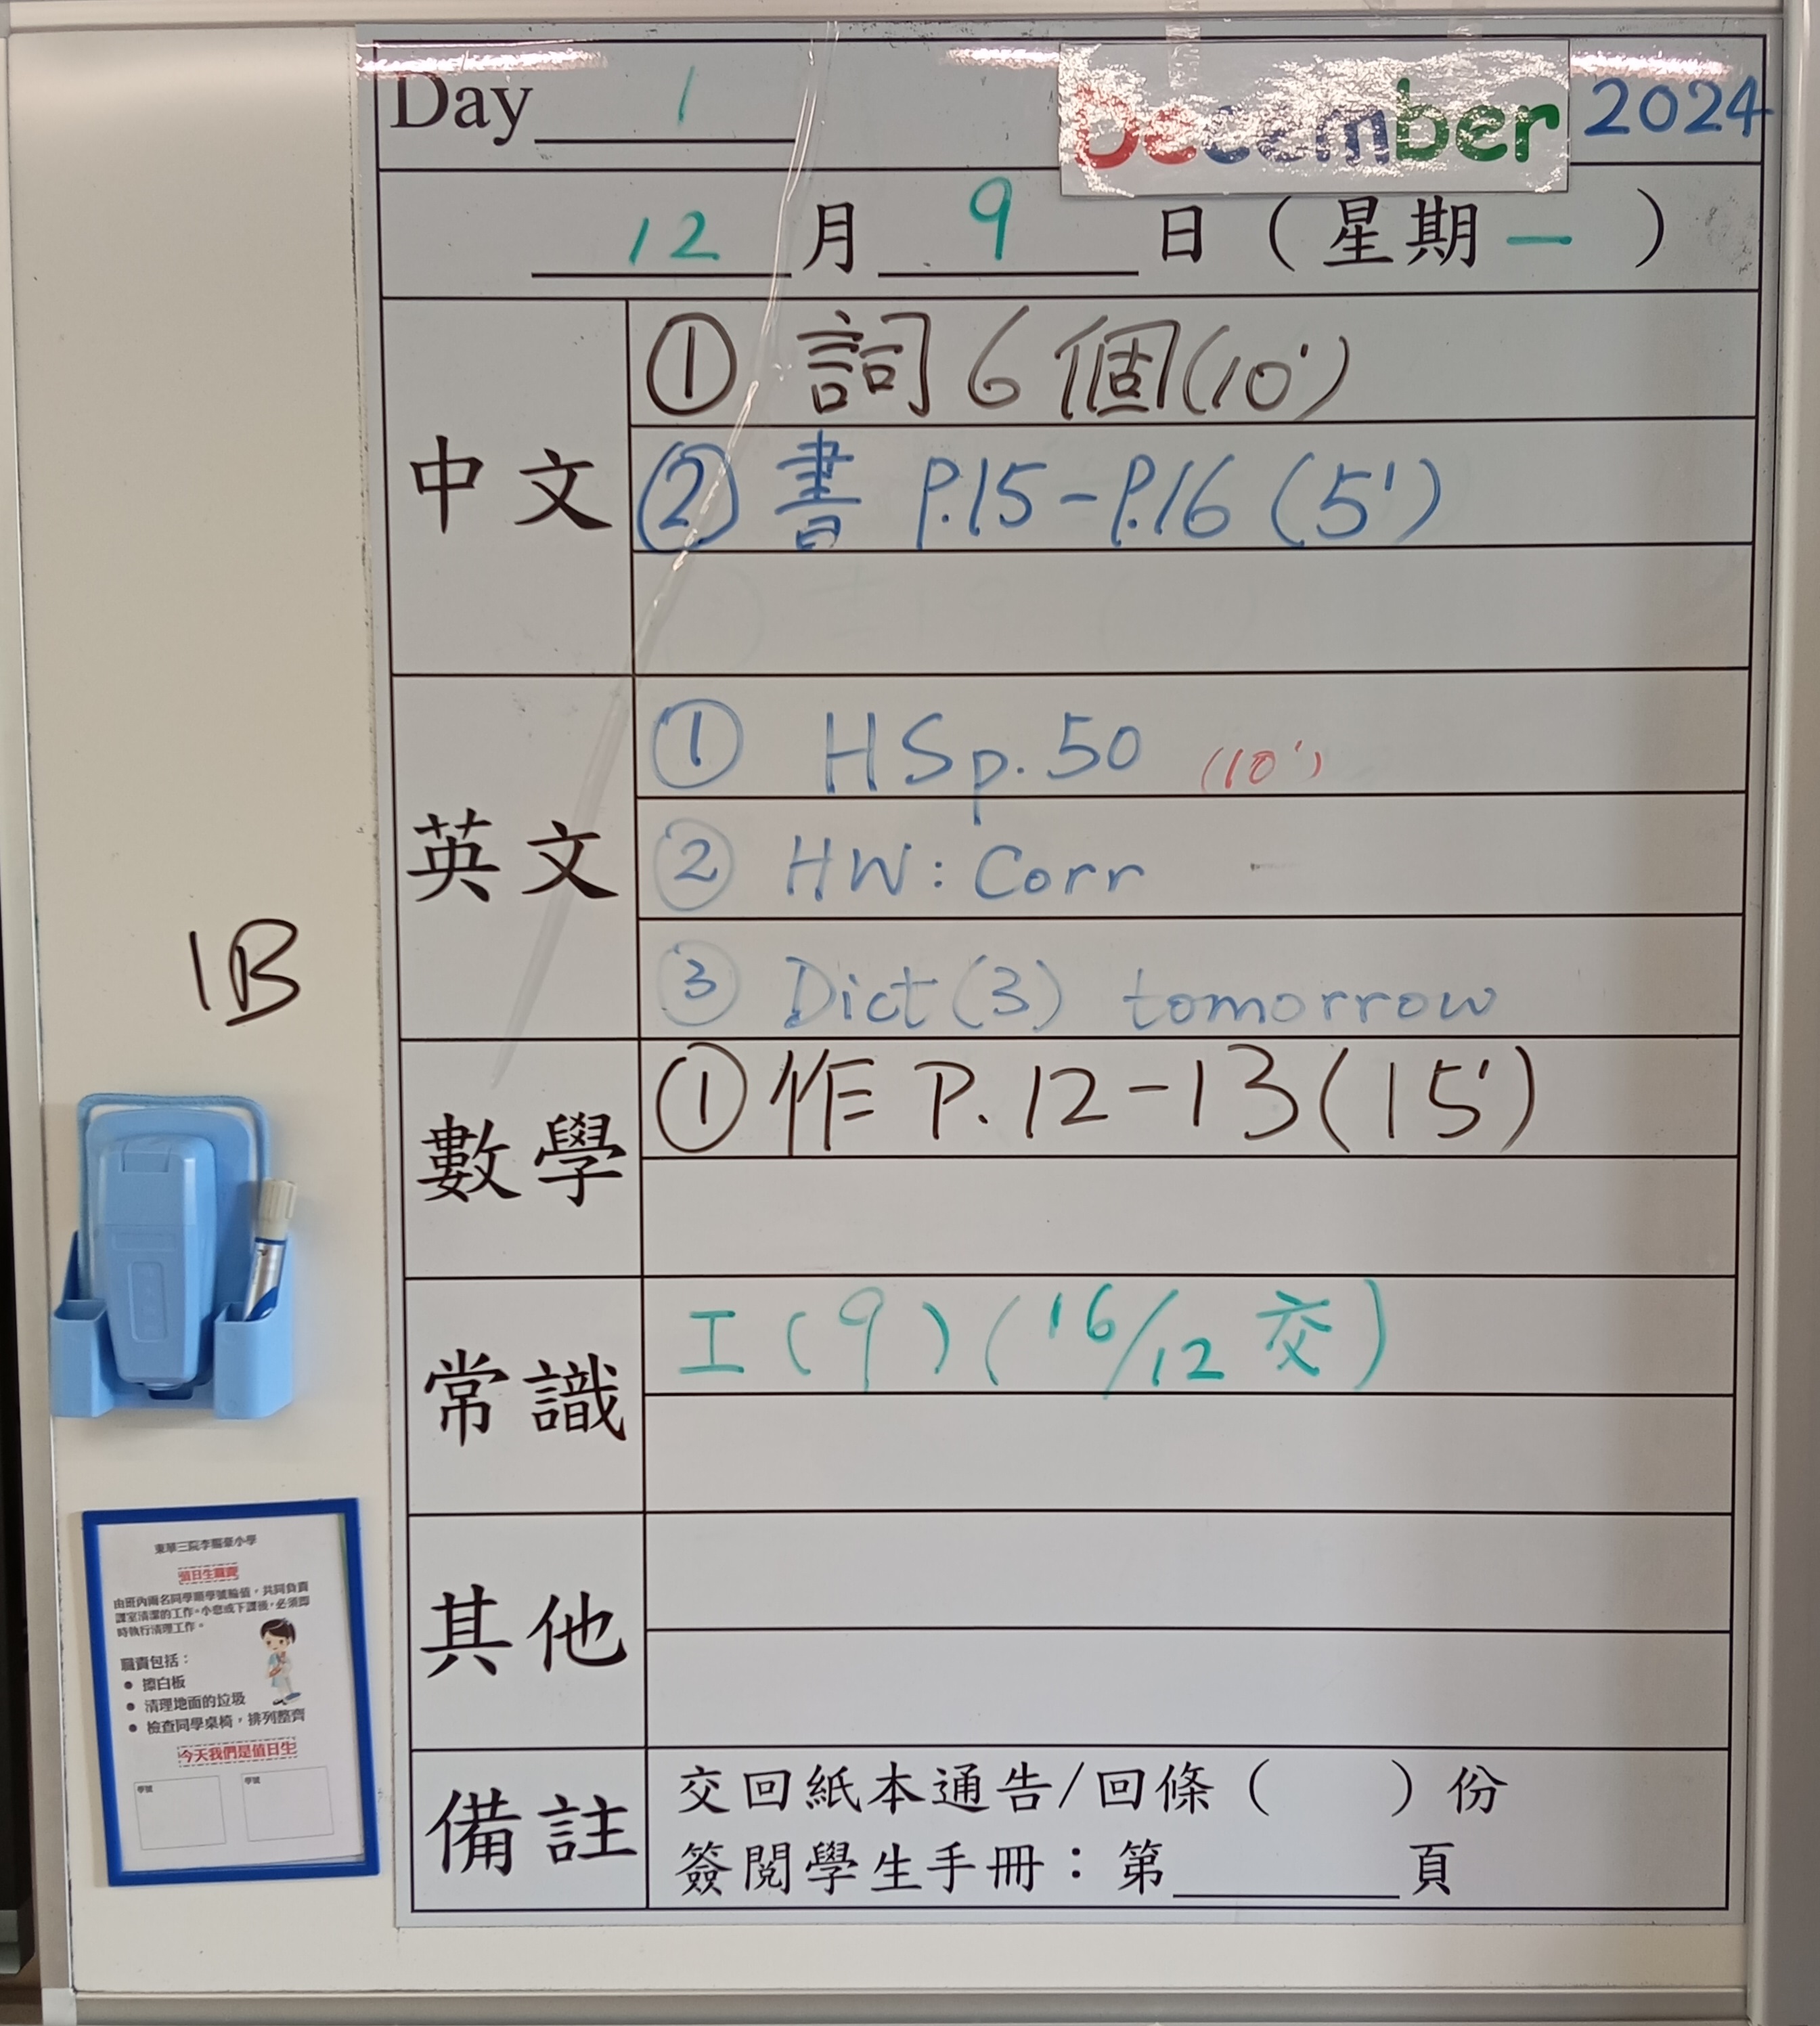 Day 1 December 2024
12 月 9 日 ( 星期一 )
中文
① 詞6個(10')
② 書 P.15-P.16 (5')
英文
① HS p.50 (10')
② HW: Corr
③ Dict(3) tomorrow
數學
① 作 P.12-13(15')
常識
工(9)(16/12 交)
其他
備註
交回紙本通告/回條（ ）份
簽閱學生手冊：第____頁
1B
值日生職責
由班內兩名同學順學號輪值，共同負責
課室清潔的工作。小息或下課後，必須即
時執行清理工作。
職責包括：
● 擦白板
● 清理地面的垃圾
● 檢查同學桌椅，排列整齊
今天我們是值日生
學號 學號